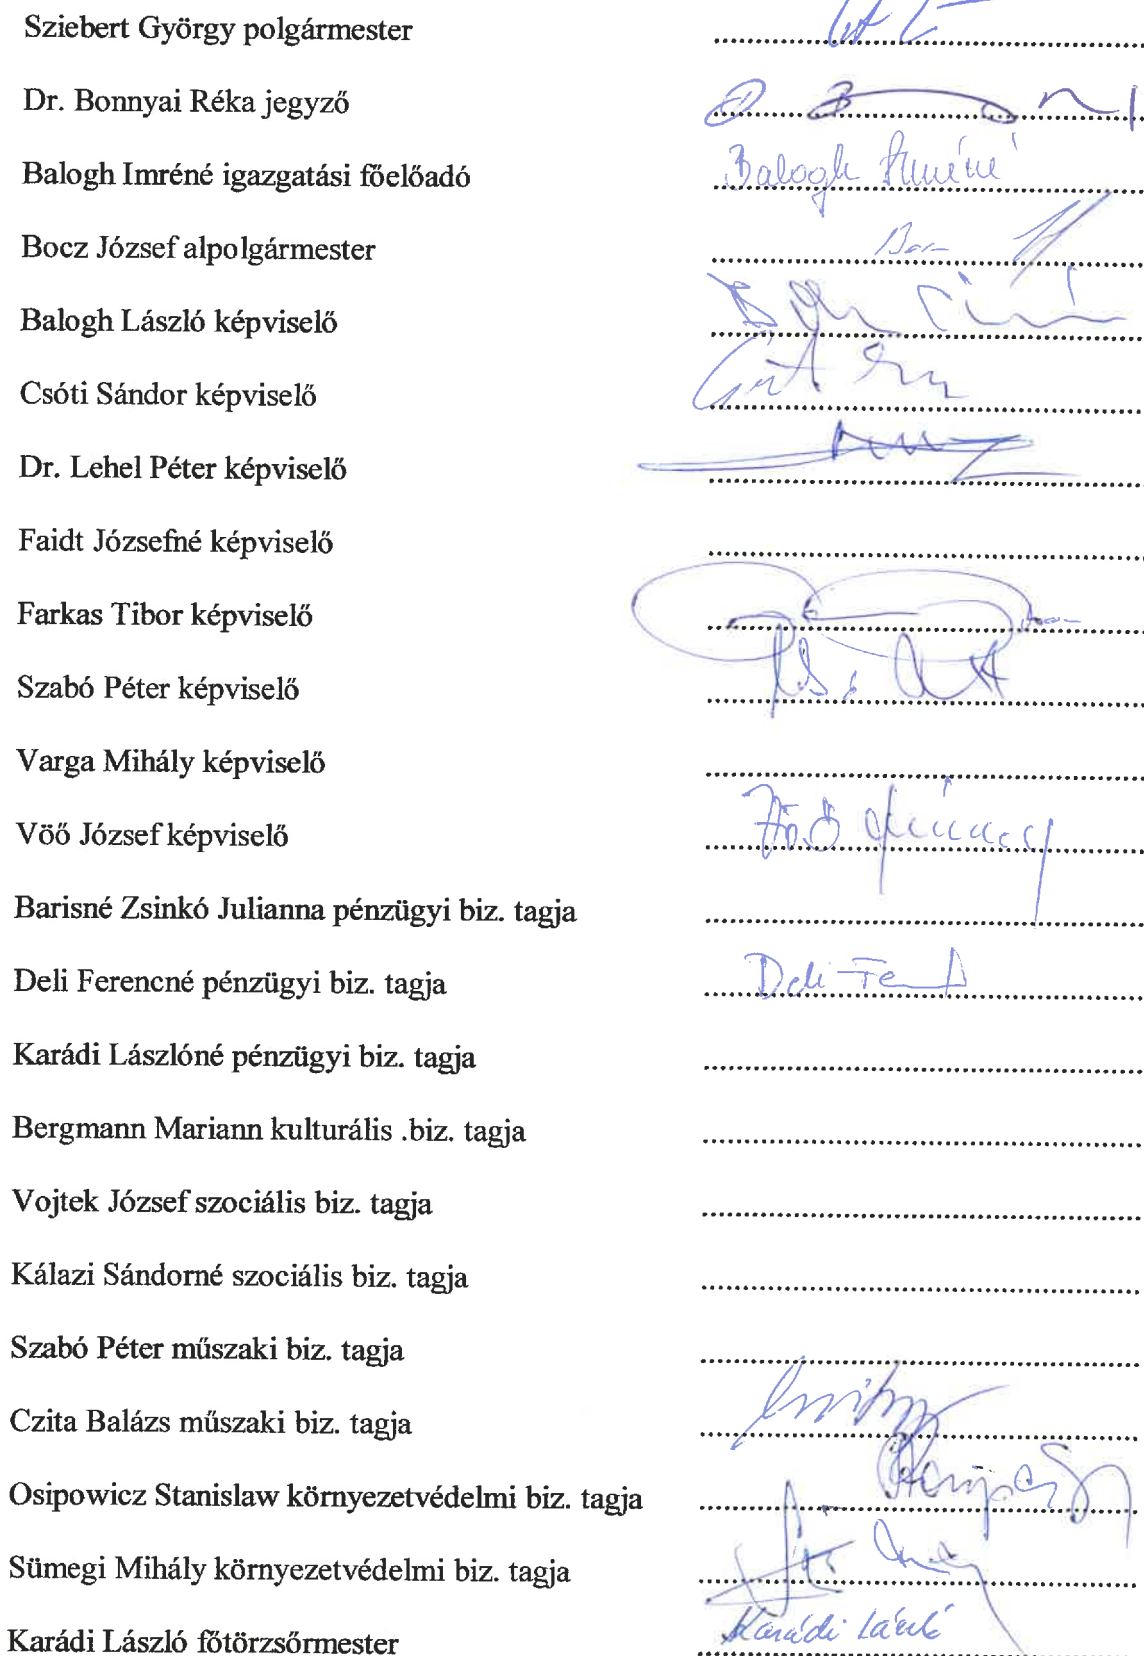 Sziebert György polgármester
Dr. Bonnyai Réka jegyző
Balogh Imréné igazgatási főelőadó Balogh Imréné
Bocz József alpolgármester
Balogh László képviselő
Csóti Sándor képviselő
Dr. Lehel Péter képviselő
Faidt Józsefné képviselő
Farkas Tibor képviselő
Szabó Péter képviselő
Varga Mihály képviselő
Vöő József képviselő
Barisné Zsinkó Julianna pénzügyi biz. tagja
Deli Ferencné pénzügyi biz. tagja Deli
Karádi Lászlóné pénzügyi biz. tagja
Bergmann Mariann kulturális .biz. tagja
Vojtek József szociális biz. tagja
Kálazi Sándorné szociális biz. tagja
Szabó Péter műszaki biz. tagja
Czita Balázs műszaki biz. tagja
Osipowicz Stanislaw környezetvédelmi biz. tagja
Sümegi Mihály környezetvédelmi biz. tagja
Karádi László főtörzsőrmester Karádi László